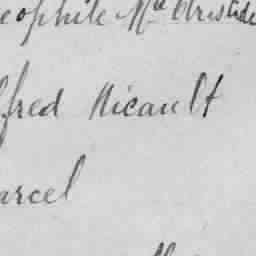 eophile Md Aristide
lfred Nicault
arcel